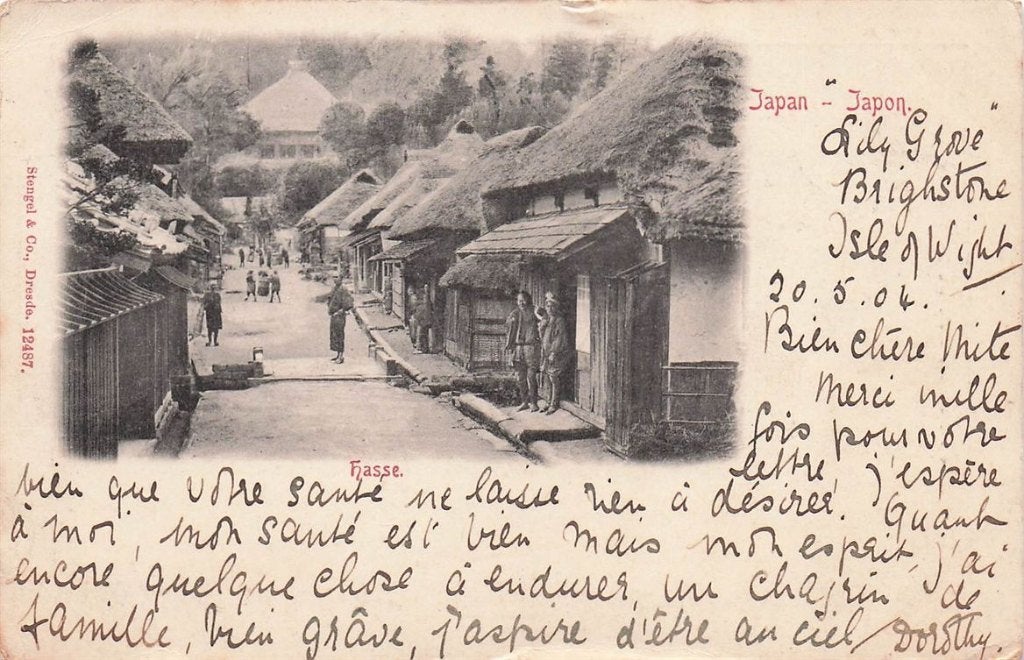 Japan - Japon.
"Lily Grove"
Brighstone
Isle of Wight
20.5.04.
Bien chère Mite
Merci mille
fois pour votre
lettre, j'espère
bien que votre santé ne laisse rien à désirer. Quant
à moi, mon santé est bien mais mon esprit, j'ai
encore quelque chose à endurer, un chagrin de
famille, bien grâve, j'aspire d'être au ciel Dorothy.
Hasse.
Stengel & Co., Dresde. 12487.